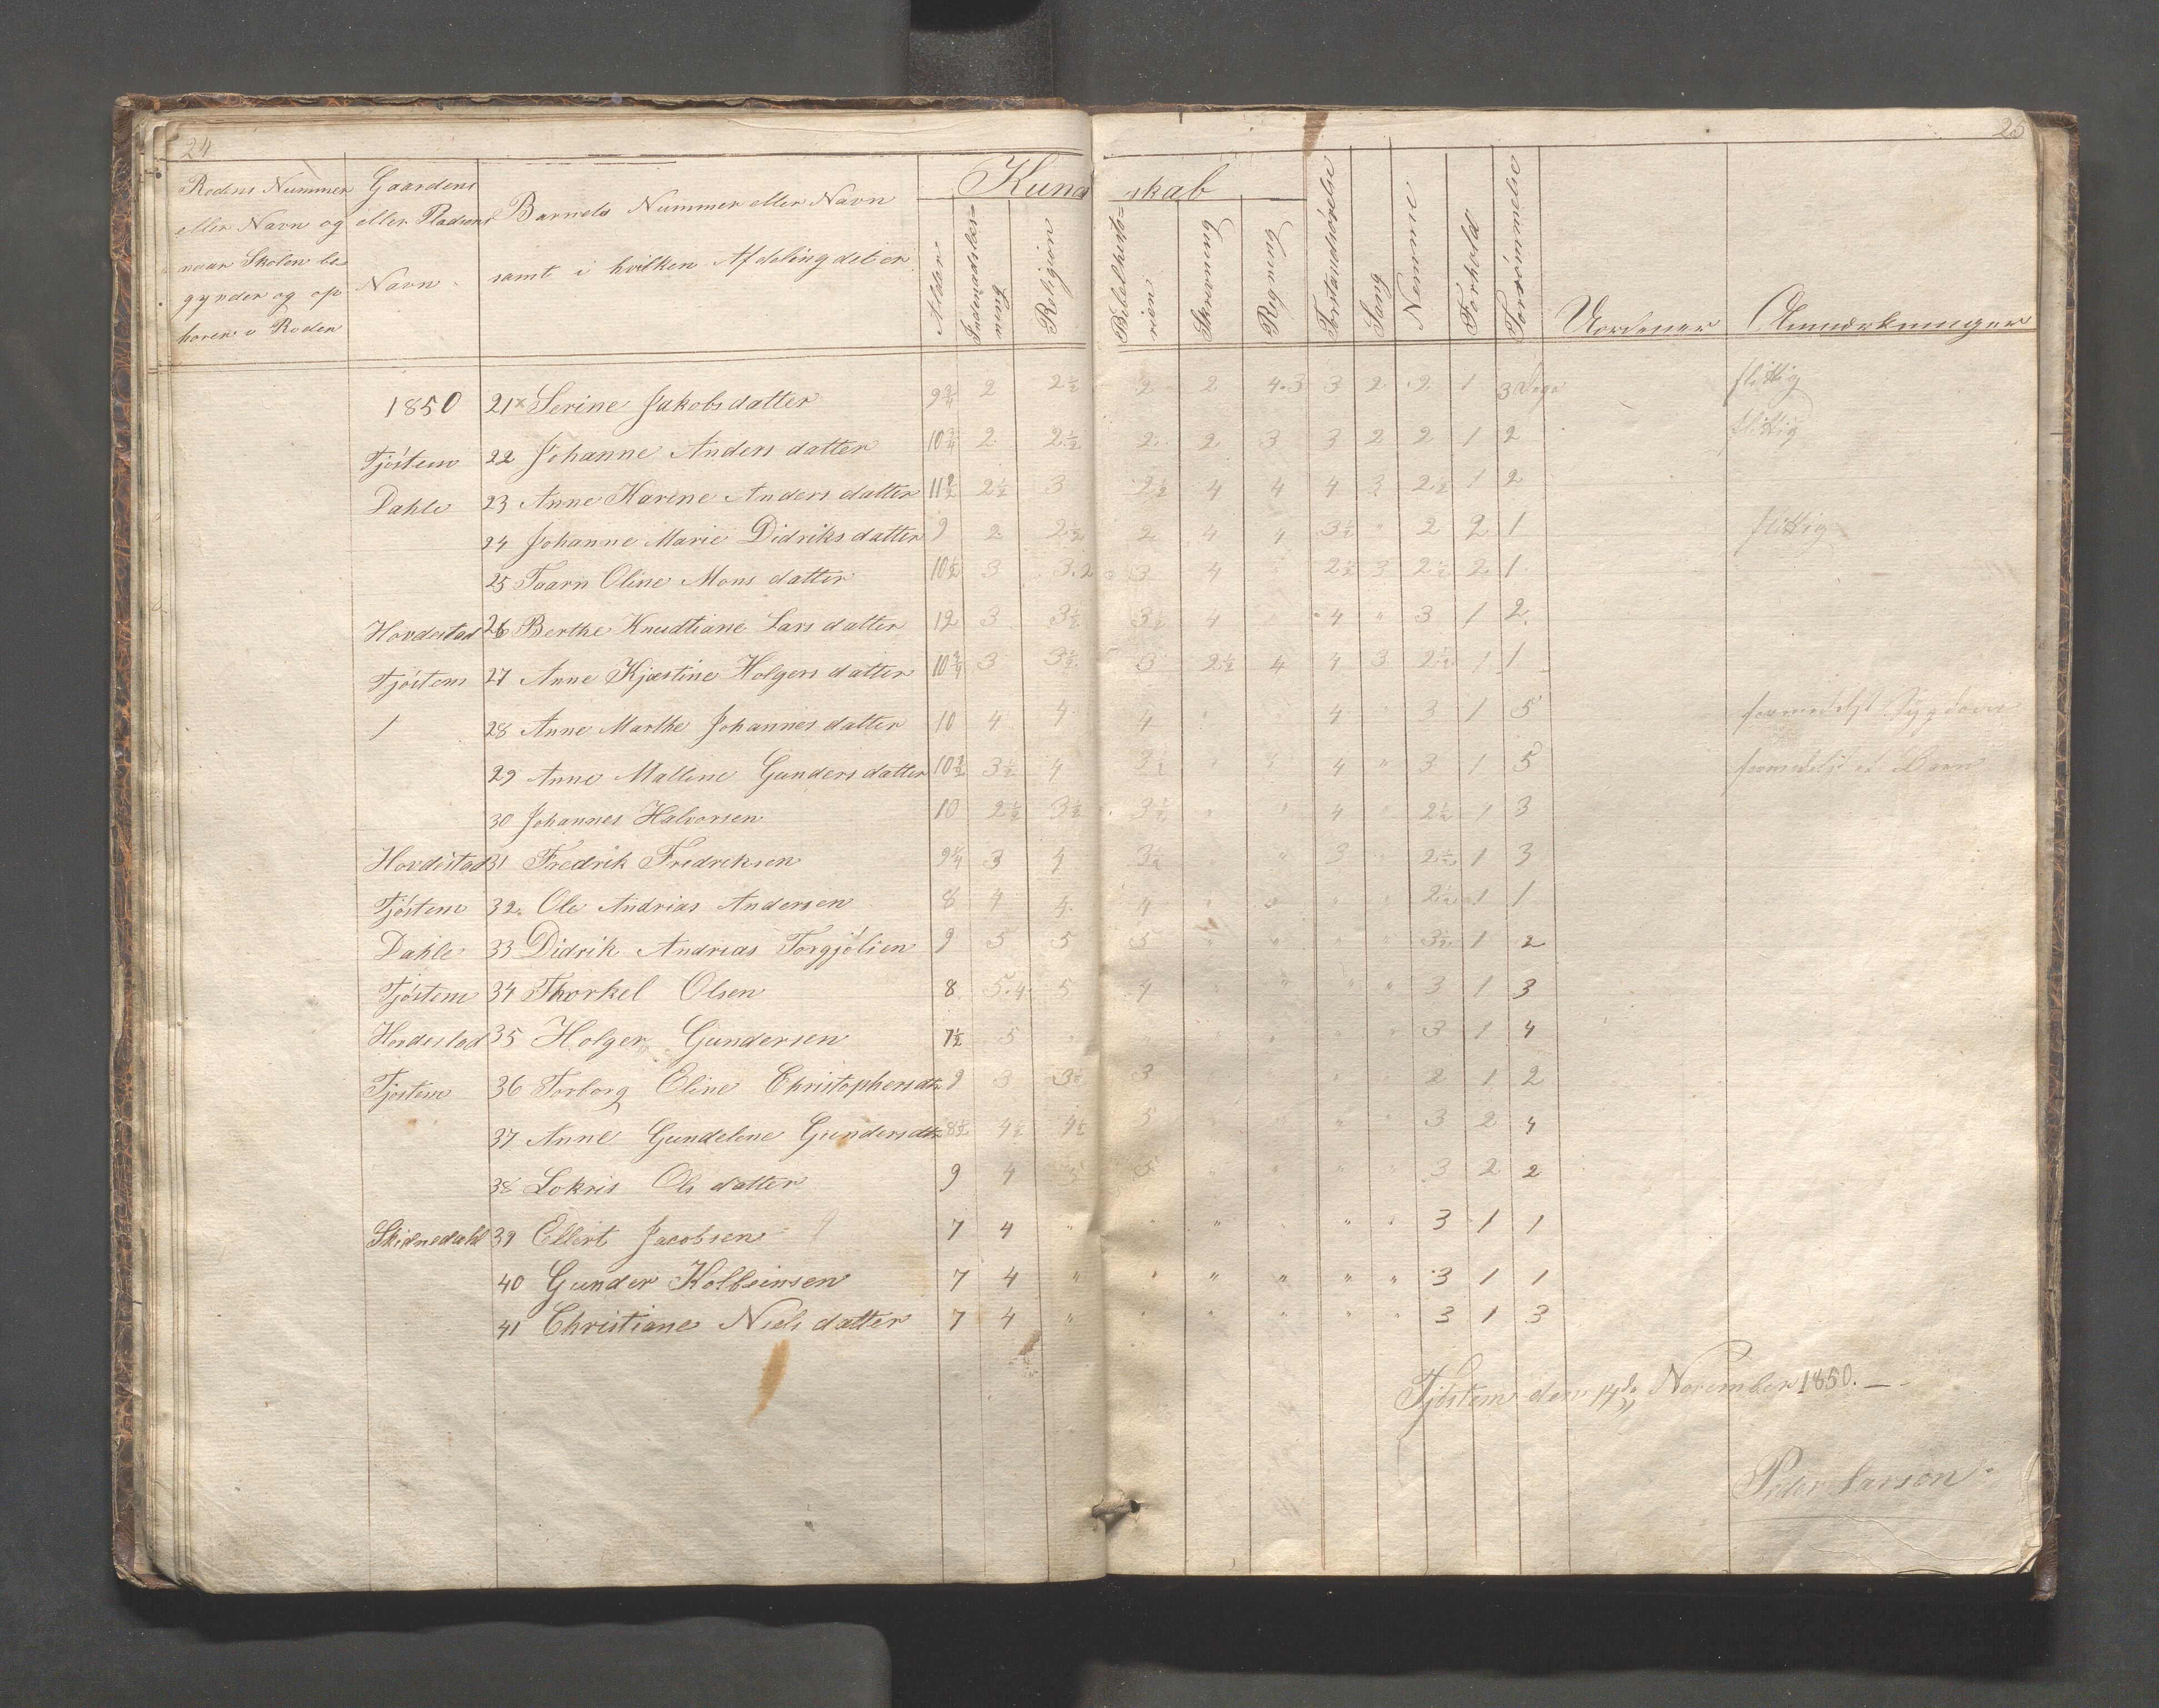 24
25
Rodens Nummer eller Navn og naar Skolen begynder og ophører i Roden
Gaardens eller Pladsens Navn
Barnets Nummer eller Navn samt i hvilken Afdeling det er
Kundskab
Alder
Indenadslæsning
Religion
Bibelhistorien
Skrevning
Regning
Forstandsøvelse
Sang
Nemme
Forhold
Forsømmelse
Uordener
Anmærkninger
1850 21 x Serine Jakobsdatter 9 3/4 2 2 1/2 2 2 4.3 3 2 2 1 3 Dage flittig
Tjøstem 22 Johanne Anders datter 10 3/4 2 2 1/2 2 2 3 3 2 2 1 2 flittig
Dahle 23 Anne Karine Anders datter 11 1/2 2 1/2 3 2 1/2 4 4 4 3 2 1/2 1 2
24 Johanne Marie Didriks datter 9 2 2 1/2 2 4 4 3 1/2 " 2 2 1 flittig
25 Taarn Oline Mons datter 10 1/2 3 3.2 3 4 2 1/2 3 2 1/2 2 1
Hovdestad 26 Berthe Knudtiane Lars datter 12 3 3 1/2 3 1/2 4 4 " 3 1 2
Tjøstem 27 Anne Kjæstine Holgers datter 10 3/4 3 3 1/2 3 2 1/2 4 4 3 2 1/2 1 1
1 28 Anne Marthe Johannes datter 10 4 4 4 4 " 3 1 5 formedelst Sygdom
29 Anne Malline Gunders datter 10 1/2 3 1/2 4 3 1/2 4 " 3 1 5 formedelst
30 Johannes Halvorsen 10 2 1/2 3 1/2 3 1/2 " " 4 2 1/2 1 3
Hovdestad 31 Fredrik Fredriksen 9 1/4 3 4 3 1/2 " 3 2 1/2 1 3
Tjøstem 32 Ole Andrias Andersen 8 4 4 4 2 1/2 1 1
Dahle 33 Didrik Andreas Torgjølsen 9 5 5 5 " " " 3 1/2 1 2
Tjøstem 34 Thorkel Olsen 8 5.4 5 4 " " " 3 1 3
Hovdestad 35 Holger Gundersen 7 1/2 5 3 1 4
Tjøstem 36 Torborg Eline Christophersdtr 9 3 3 1/2 3 2 1 2
37 Anne Gundelene Gundersdtr 8 1/2 4 1/2 4 1/2 5 " 3 2 4
38 Lokris Ols datter 9 4 5 5 " " " 3 2 2
Skidnedahl 39 Ellert Jacobsen 7 4 " " " " 3 1 1
40 Gunder Kolbeinsen 7 4 " " " " " " 3 1 1
41 Christiane Niels datter 7 4 " " " " " " 3 1 3
Tjøstem den 14de November 1850.
Peder Larsen